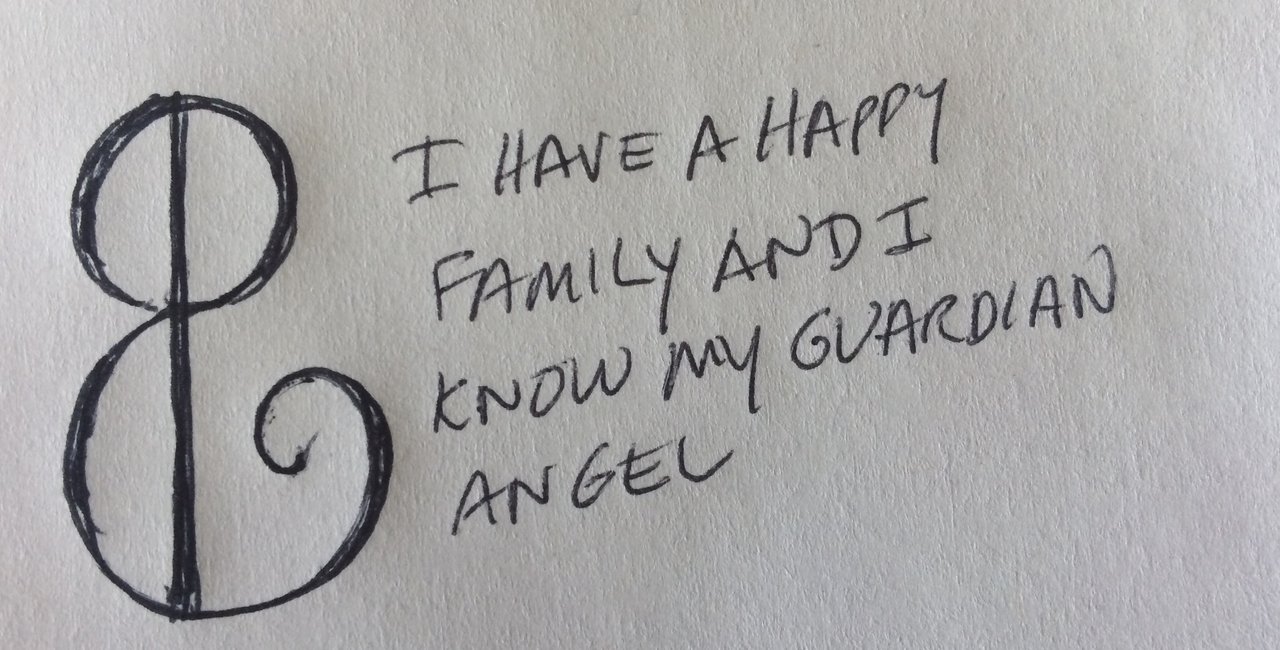 I HAVE A HAPPY
FAMILY AND I
KNOW MY GUARDIAN
ANGEL